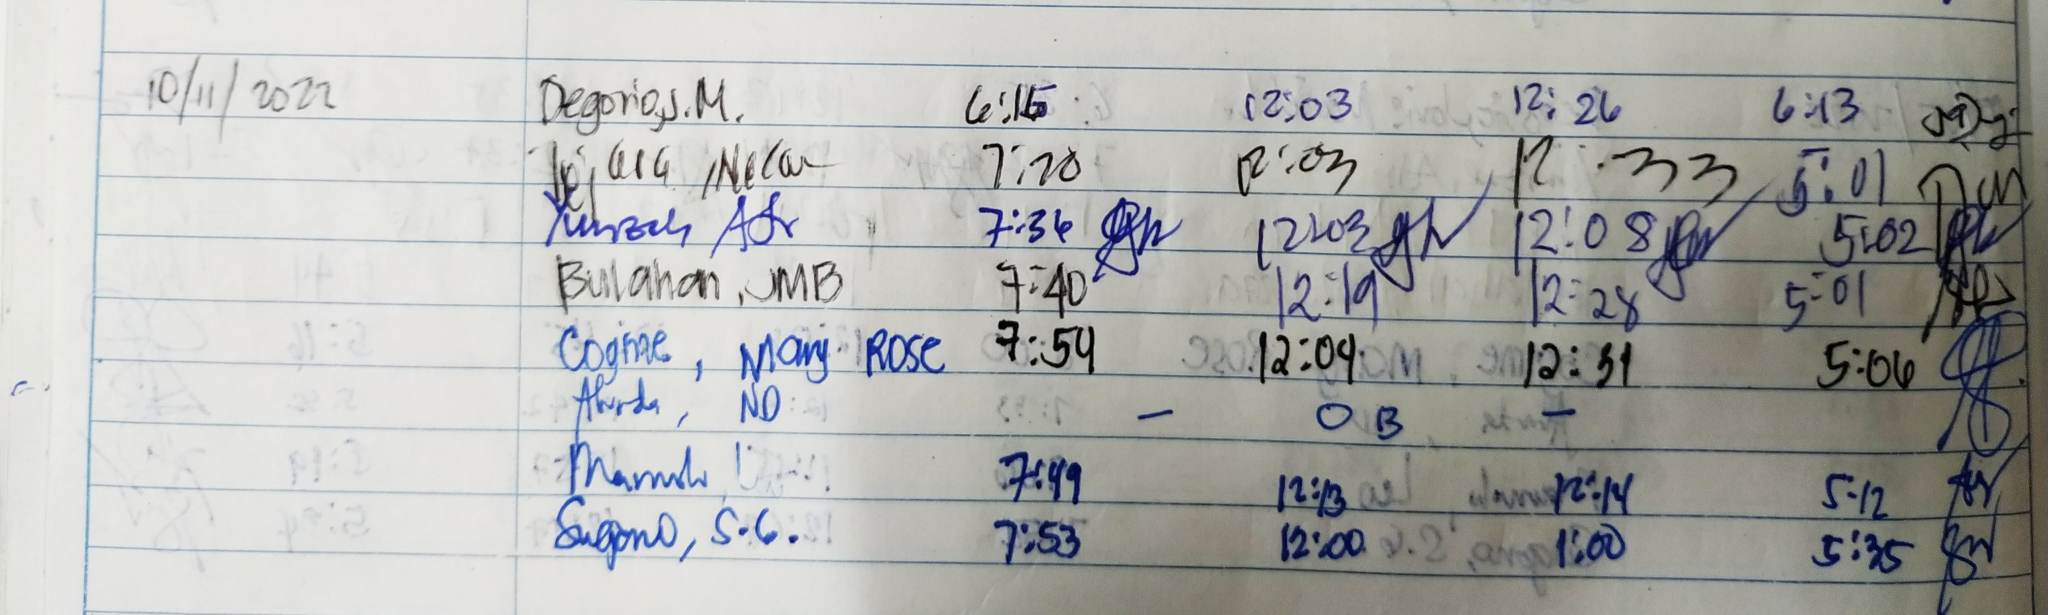 10/11/2022 Degorio, J.M. 6:15 12:03 12:26 6:13
7:20 12:03 12:33 5:01
7:36 12:03 12:08 5:02
Bulahan, JMB 7:40 12:19 12:28 5:01
Cogine, Mary Rose 7:54 12:04 12:31 5:06
ND — OB —
7:49 12:13 12:14 5:12
Sugono, S.G. 7:53 12:00 1:00 5:35